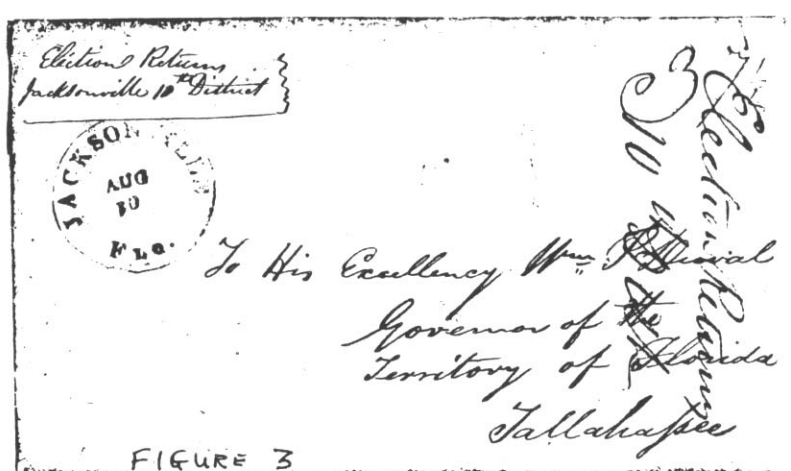 Election Returns
Jacksonville 10th District
JACKSONVILLE
AUG
30
Flo.
To His Excellency Wm P Duval
Governor of the
Territory of Florida
Tallahassee
Election Returns
FIGURE 3